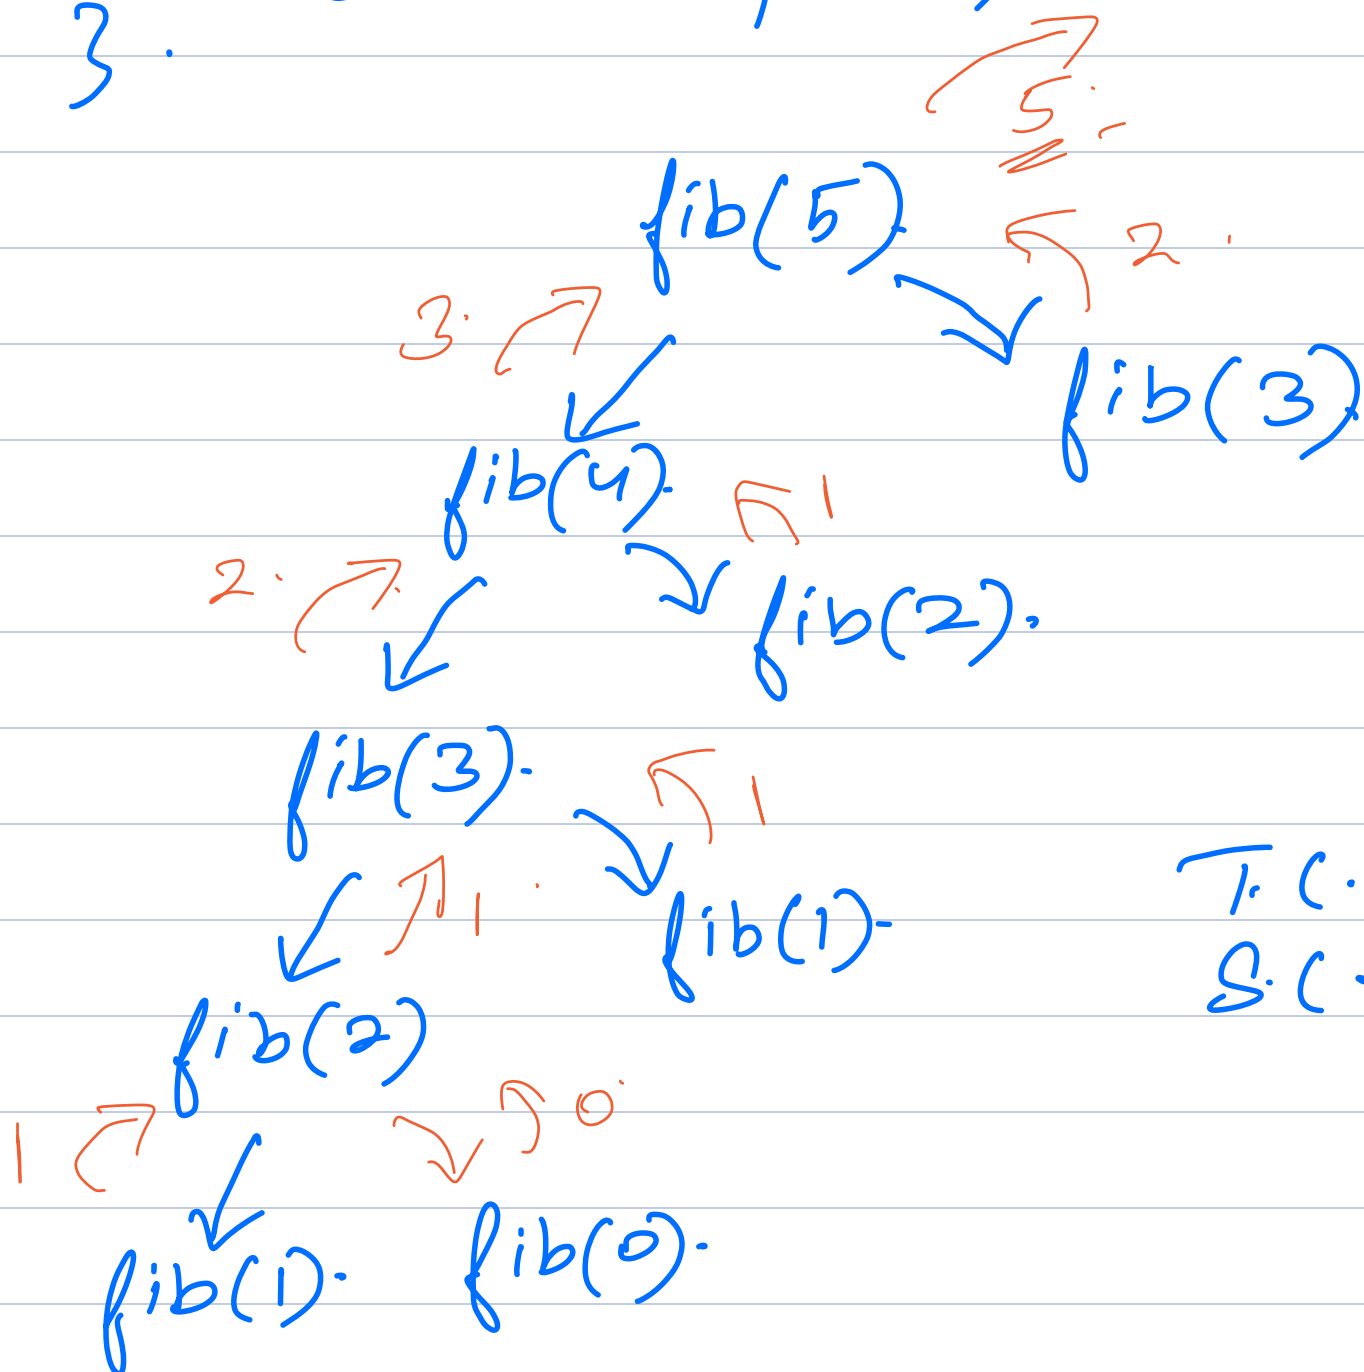 }.
5.
fib(5).
2.
3.
fib(3).
fib(4).
1
2.
fib(2).
fib(3).
1
1
fib(1).
T.C.
S.C.
fib(2)
1
0
fib(1).
fib(0).